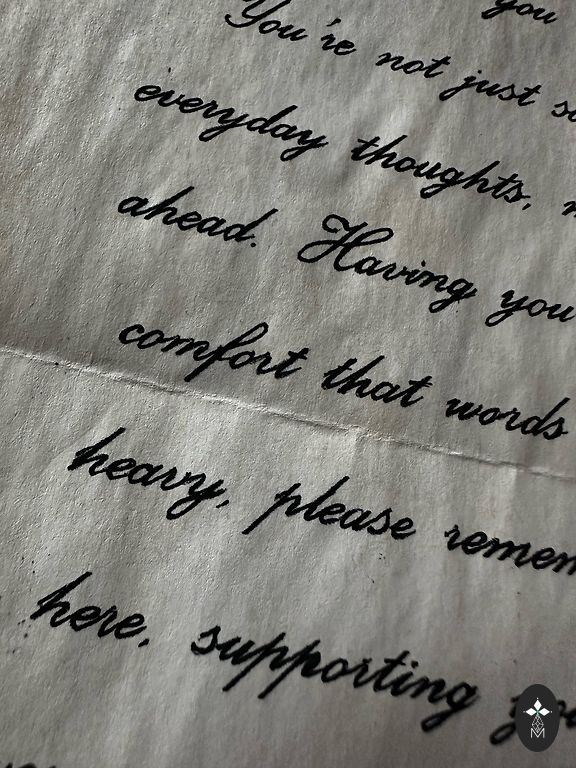 you
You're not just
everyday thoughts,
ahead. Having you
comfort that words
heavy, please
here, supporting
M